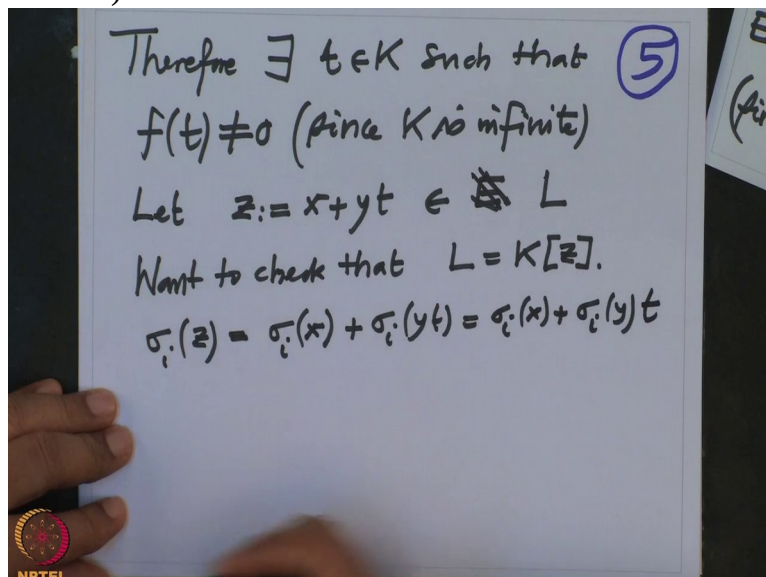 Therefore ∃ t ∈ K such that
5
f(t) ≠ 0 (since K is infinite)
Let z := x + yt ∈ L
Want to check that L = K[z].
σᵢ(z) = σᵢ(x) + σᵢ(yt) = σᵢ(x) + σᵢ(y) t
NPTEL